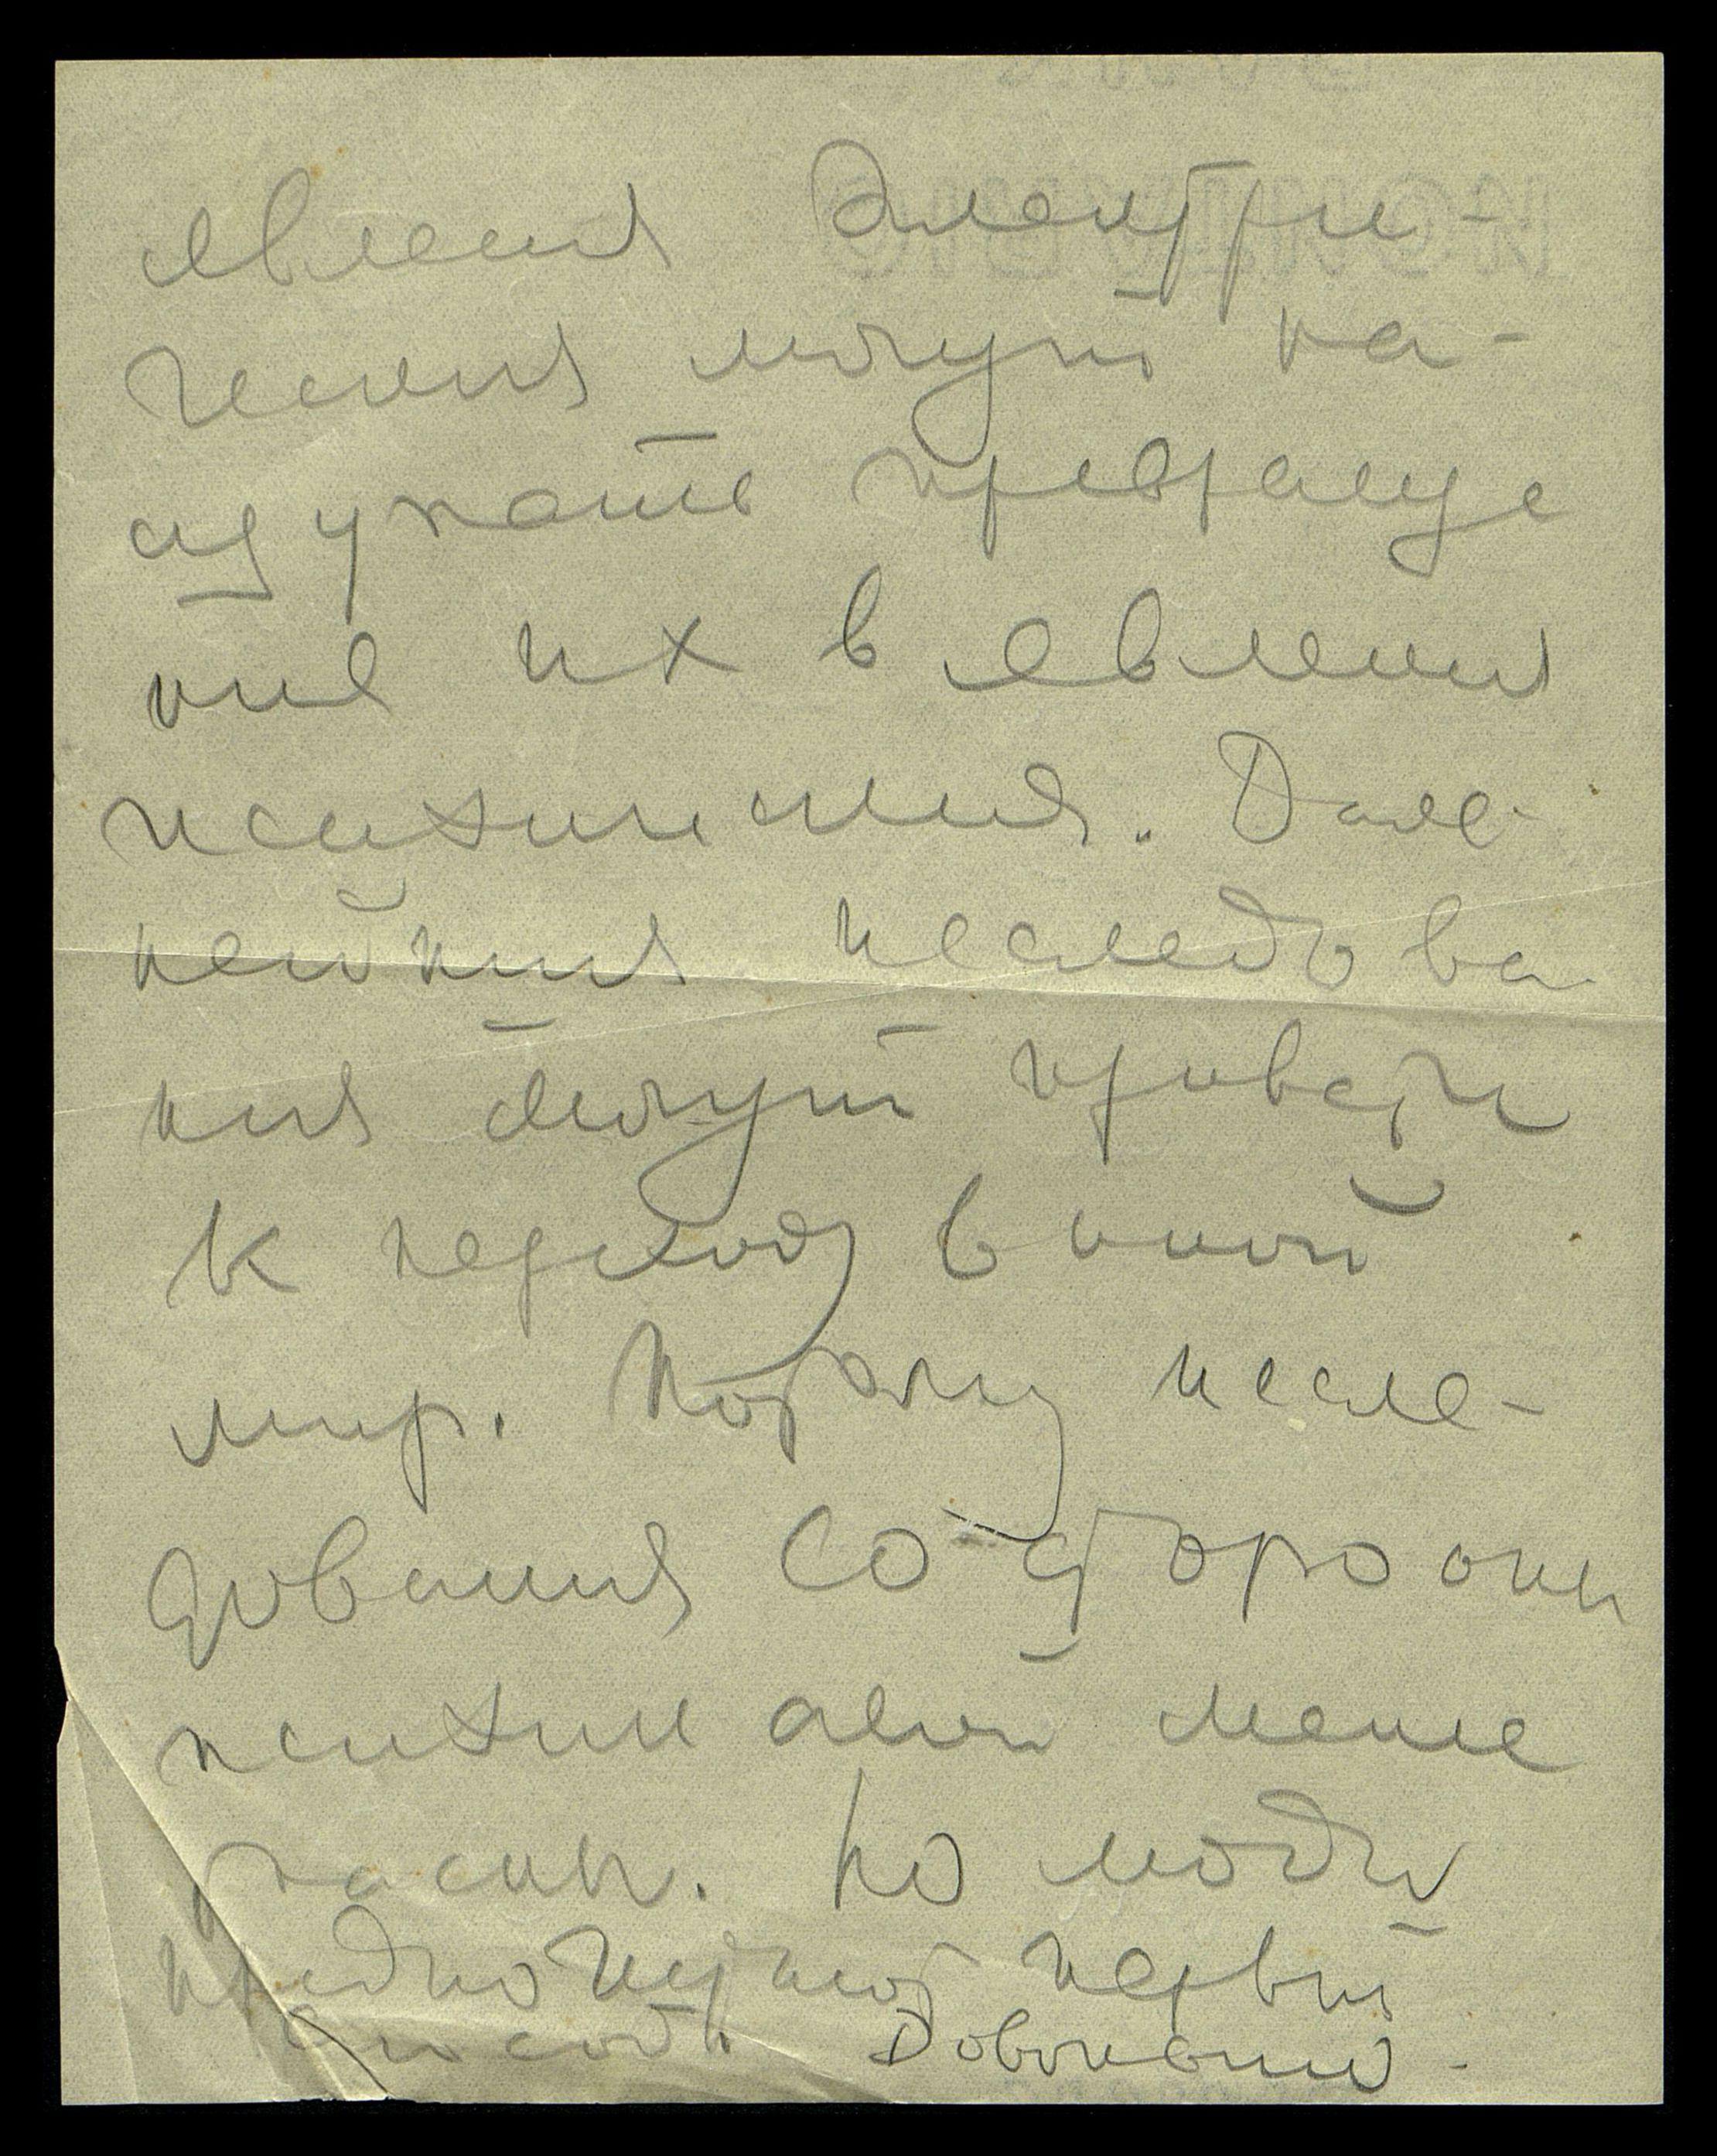 явления Электри-
ческия могут на-
ние их в явления
психическия. Даль-
нейшия исследова
ния могут привести
к переходу в иной
мир. Потому иссле-
дования со стороны
психической менее
опасны. Но люди
предпочитают первый
способ. Довольно